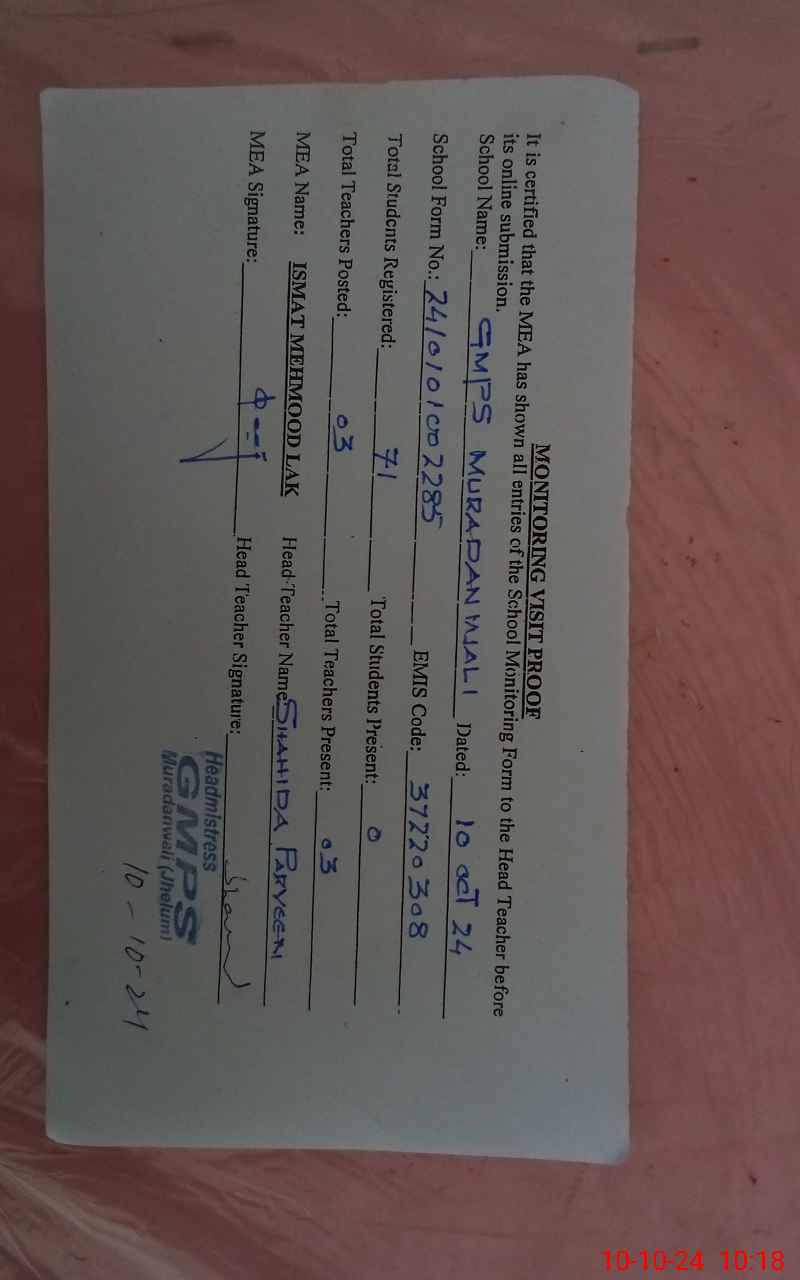 MONITORING VISIT PROOF
It is certified that the MEA has shown all entries of the School Monitoring Form to the Head Teacher before
its online submission.
School Name: GMPS MURADANWALI Dated: 10 OCT 24
School Form No.: 2410101002285 EMIS Code: 37220308
Total Students Registered: 71 Total Students Present: 0
Total Teachers Posted: 03 Total Teachers Present: 03
MEA Name: ISMAT MEHMOOD LAK Head-Teacher Name SHAHIDA PARVEEN
MEA Signature: Head Teacher Signature:
Headmistress
GMPS
Muradanwali (Jhelum)
10-10-24
10-10-24 10:18